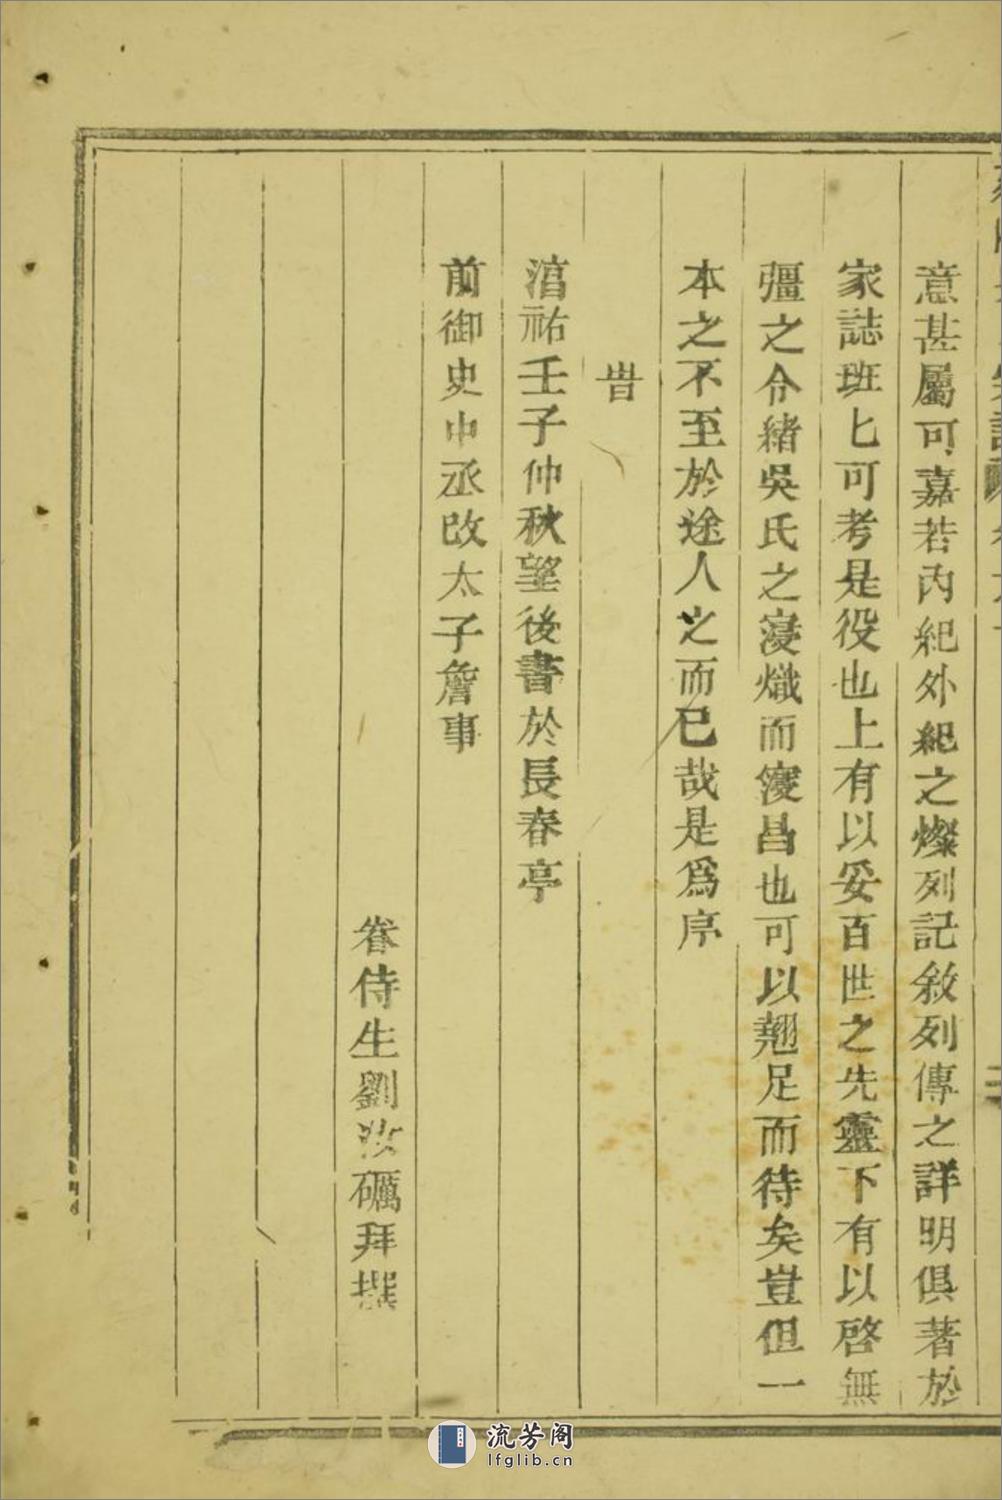 意甚屬可嘉若內紀外紀之燦列記敘列傳之詳明俱著於
家誌班匕可考是役也上有以妥百世之先靈下有以啓無
彊之令緒吳氏之寖熾而寖昌也可以翹足而待矣豈但一
本之不至於途人之而已哉是爲序
旹
淯祐壬子仲秋望後書於長春亭
前御史中丞改太子詹事
眷侍生劉汝礪拜撰
流芳阁
lfglib.cn